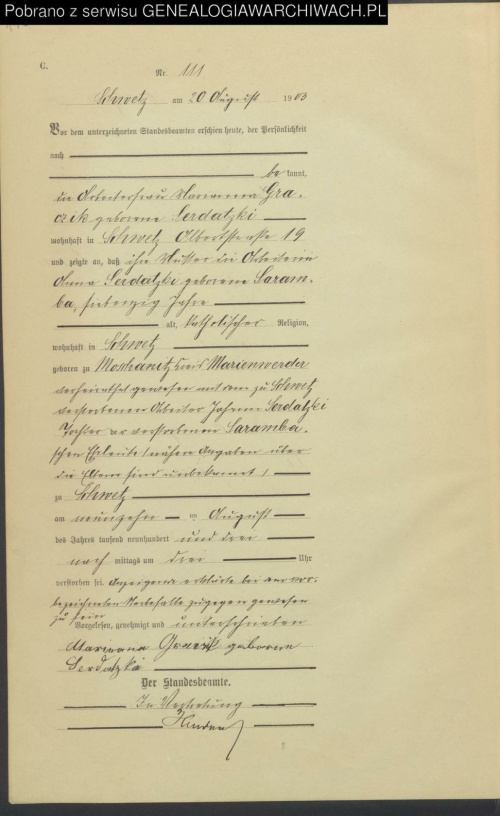 Pobrano z serwisu GENEALOGIAWARCHIWACH.PL
C.
Nr. 111
Schwetz am 20 August 1903
Vor dem unterzeichneten Standesbeamten erschien heute, der Persönlichkeit
nach
be kannt,
die Arbeiterfrau Marianna Gra-
czik geborene Serdatzki
wohnhaft in Schwetz Albertstraße 19
und zeigte an, daß ihre Mutter die Arbeiterin
Anna Serdatzki geborene Saram-
ba, siebenzig Jahre
alt, katholischer Religion,
wohnhaft in Schwetz
geboren zu Kreis Marienwerder
verheirathet gewesen mit dem zu Schwetz
verstorbenen Arbeiter Johann Serdatzki
Tochter der verstorbenen Saramba-
schen Eheleute (nähere Angaben über
die Eltern sind unbekannt)
zu Schwetz
am neunzehn ten August
des Jahres tausend neunhundert und drei
nach mittags um drei Uhr
verstorben sei. Anzeigende erklärte bei dem vor-
bezeichneten Sterbefalle zugegen gewesen
zu sein
Vorgelesen, genehmigt und unterschrieben
Marianna Graczik geborene
Serdatzki
Der Standesbeamte.
In Vertretung